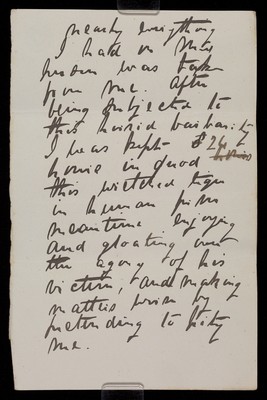 nearly everything
I had on this
person was taken
from me. After
being subjected to
this horrid barbarity
I was kept 24
hours in quod
this wretched tiger
in human form
meantime enjoying
and gloating over
the agony of his
victim, and making
matters worse by
pretending to pity
me.